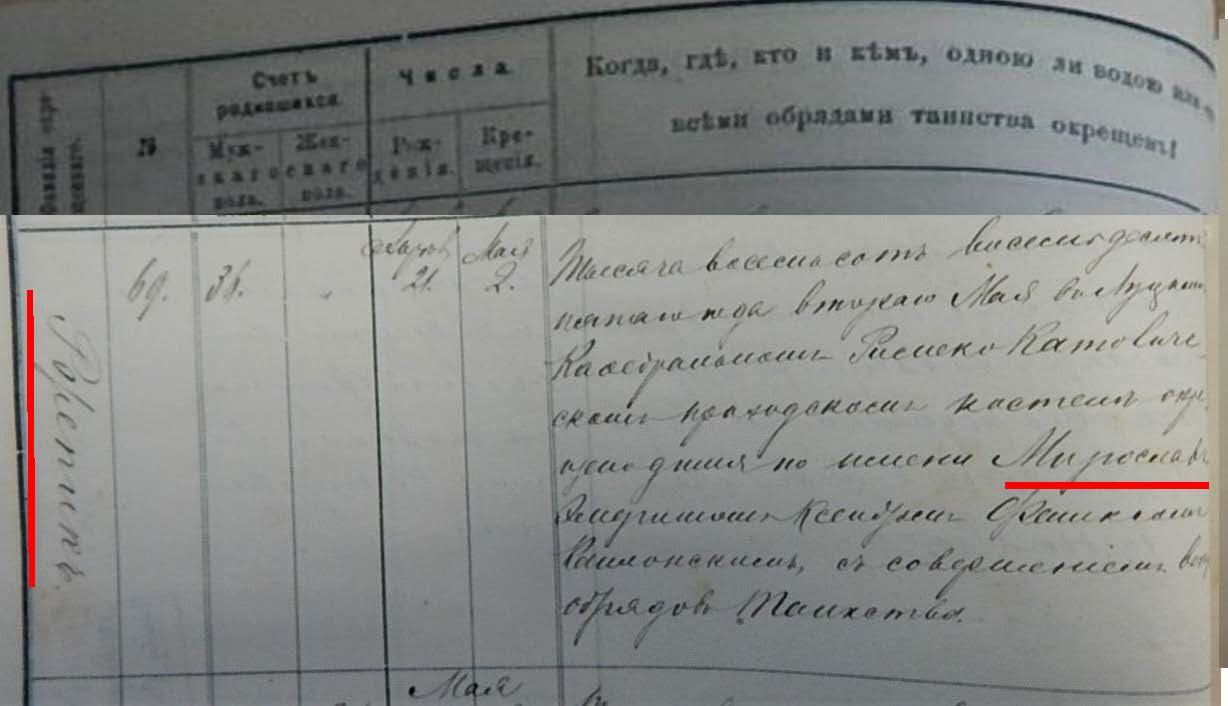 Фамилія
№
Счетъ
родившихся.
Муж-
скаго
пола.
Жен-
скаго
пола.
Числа.
Рож-
денія.
Кре-
щенія.
Когда, гдѣ, кто и кѣмъ, одною ли водою или
всѣми обрядами таинства окрещенъ?
69. 36. 21. Мая 2.
Тысяча восемьсотъ восемьдесятъ
пятаго года втораго Мая въ Луцкомъ
Кафедральномъ Римско Католиче-
скомъ приходскомъ костелѣ окре-
по имени Мирославъ
Ксендзомъ
съ совершеніемъ всѣхъ
обрядовъ Таинства.
Мая